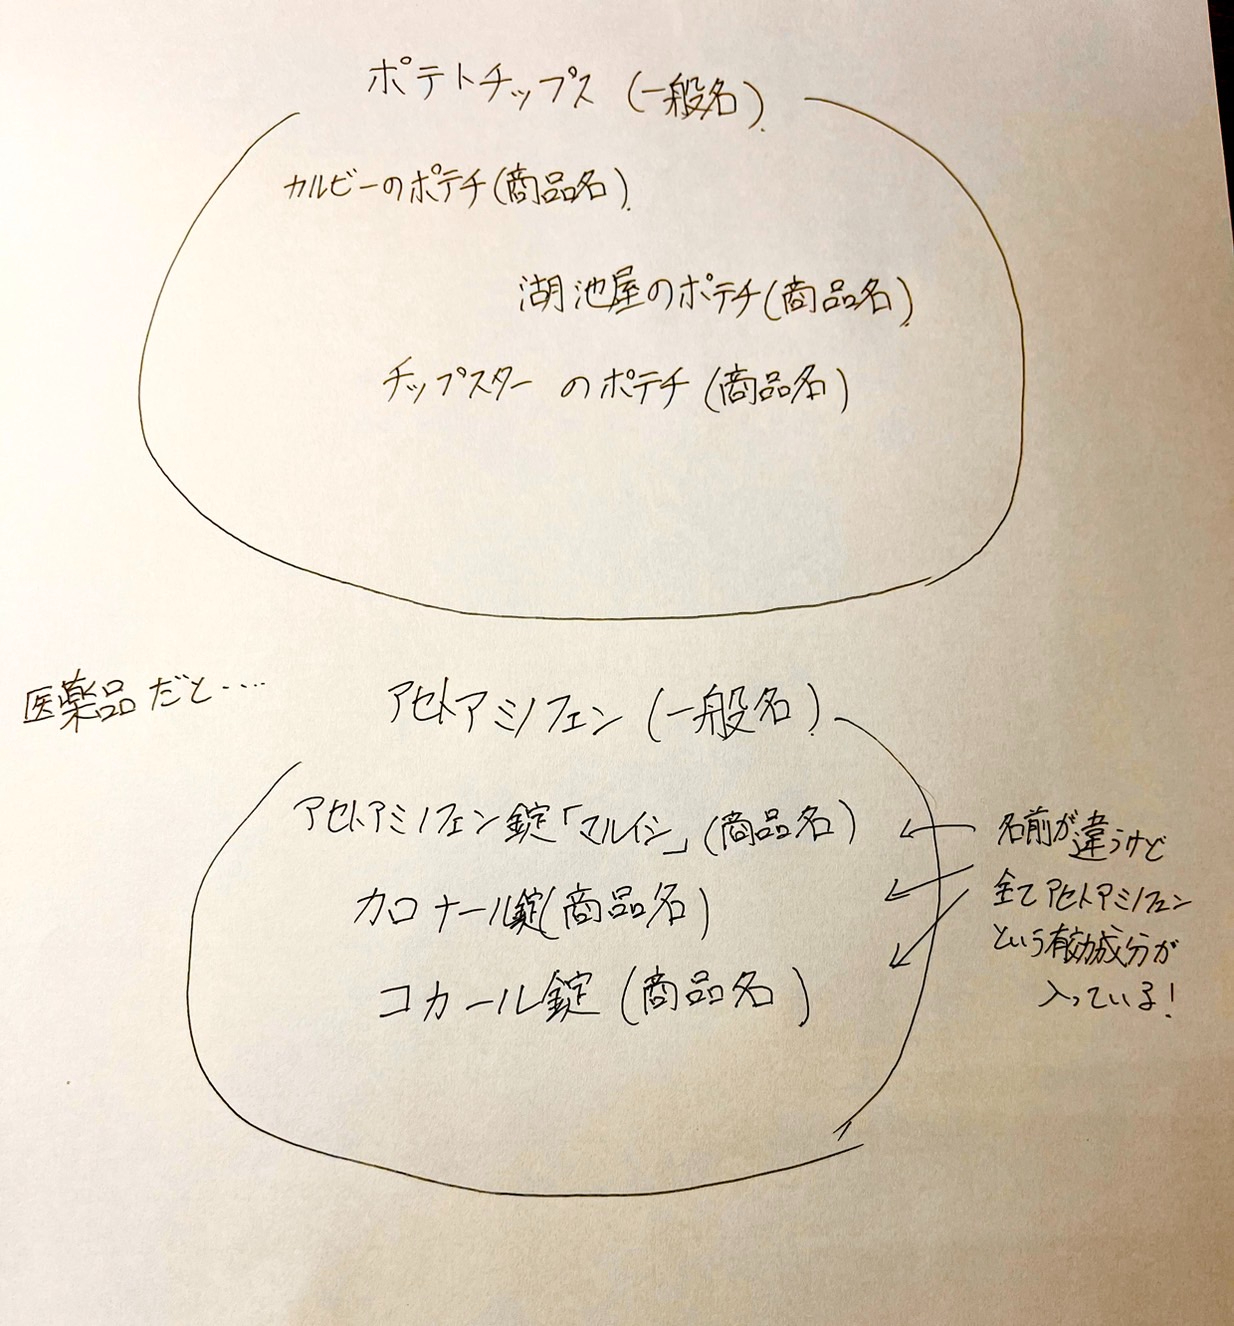 ポテトチップス (一般名)
カルビーのポテチ(商品名)
湖池屋のポテチ(商品名)
チップスターのポテチ(商品名)
医薬品だと‥‥
アセトアミノフェン(一般名)
アセトアミノフェン錠「マルイシ」(商品名)
カロナール錠(商品名)
コカール錠(商品名)
名前が違うけど
全てアセトアミノフェン
という有効成分が
入っている!